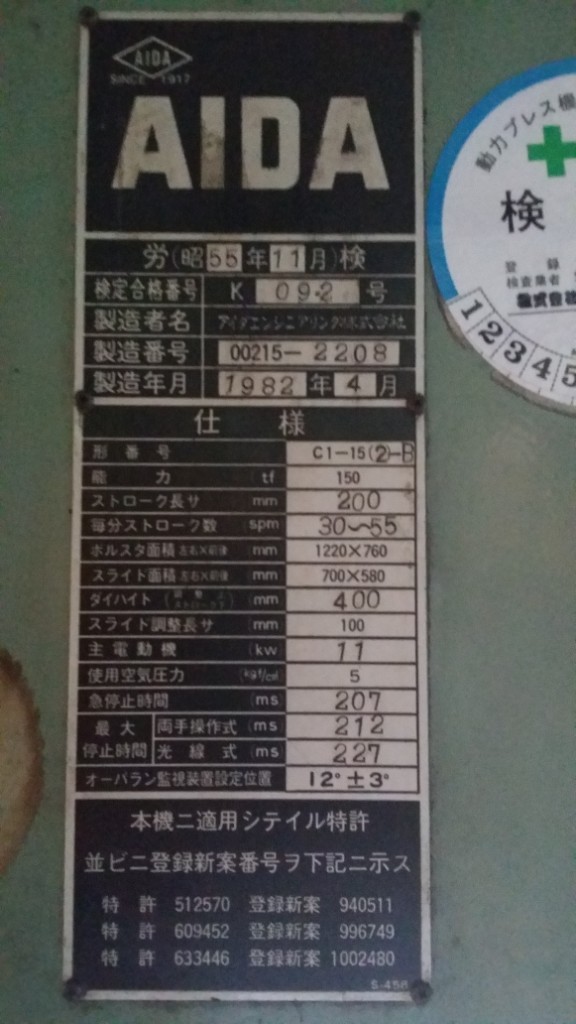 AIDA
SINCE 1917
AIDA
労(昭55年11月)検
検定合格番号 K 092 号
製造者名 アイダエンジニアリング株式会社
製造番号 00215-2208
製造年月 1982年4月
仕 様
形番号 C1-15(2)-B
能力 tf 150
ストローク長サ mm 200
毎分ストローク数 spm 30~55
ボルスタ面積 左右×前後 mm 1220×760
スライド面積 左右×前後 mm 700×580
ダイハイト mm 400
スライド調整長サ mm 100
主電動機 kw 11
使用空気圧力 kgf/cm² 5
急停止時間 ms 207
最大停止時間 両手操作式 ms 212
光線式 ms 227
オーバラン監視装置設定位置 12°±3°
本機ニ適用シテイル特許
並ビニ登録新案番号ヲ下記ニ示ス
特許 512570 登録新案 940511
特許 609452 登録新案 996749
特許 633446 登録新案 1002480
S-456
動力プレス機
検
登録
検査業者
株式会社
1 2 3 4 5